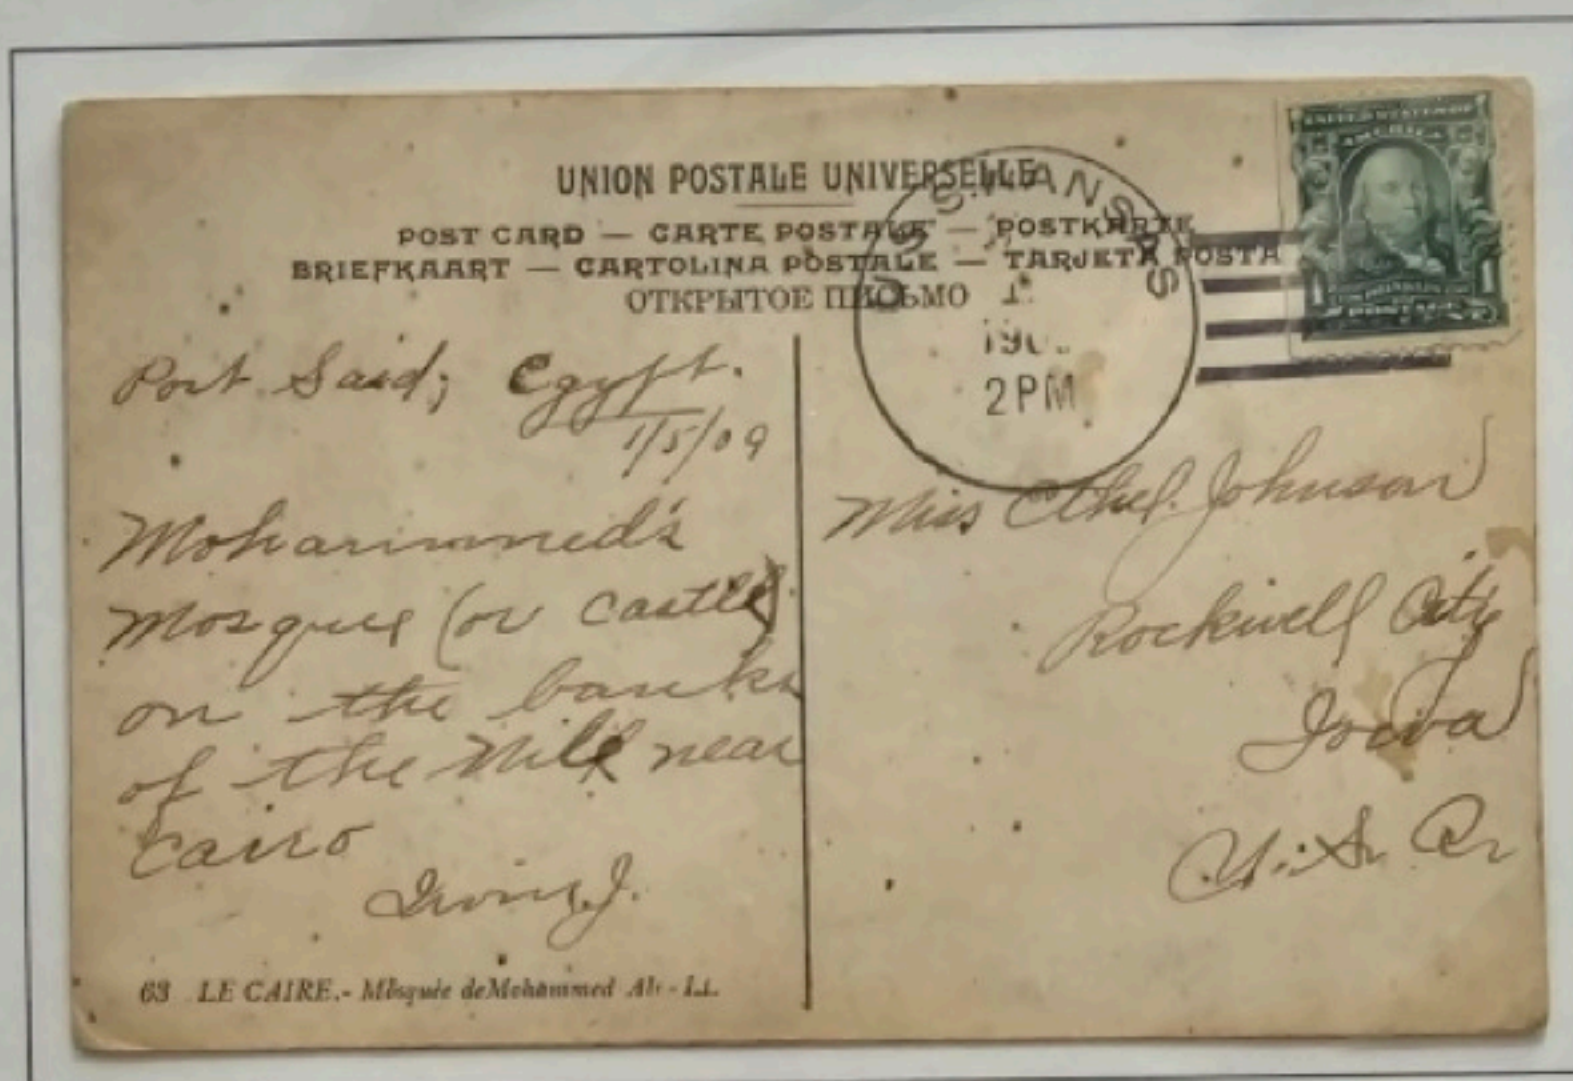 UNION POSTALE UNIVERSELLE
POST CARD — CARTE POSTALE — POSTKARTE
BRIEFKAART — CARTOLINA POSTALE — TARJETA POSTA
ОТКРЫТОЕ ПИСЬМО
U S S KANSAS
2 PM
UNITED STATES OF
AMERICA
1 1
Port Said, Egypt.
1/5/09
Mohammed's
Mosque (or Castle)
on the banks
of the Nile near
Cairo
Irving J.
Miss Ethel Johnson
Rockwell City
Iowa
U. S. A.
63 LE CAIRE.- Mosquée de Mohammed Ali - LL.